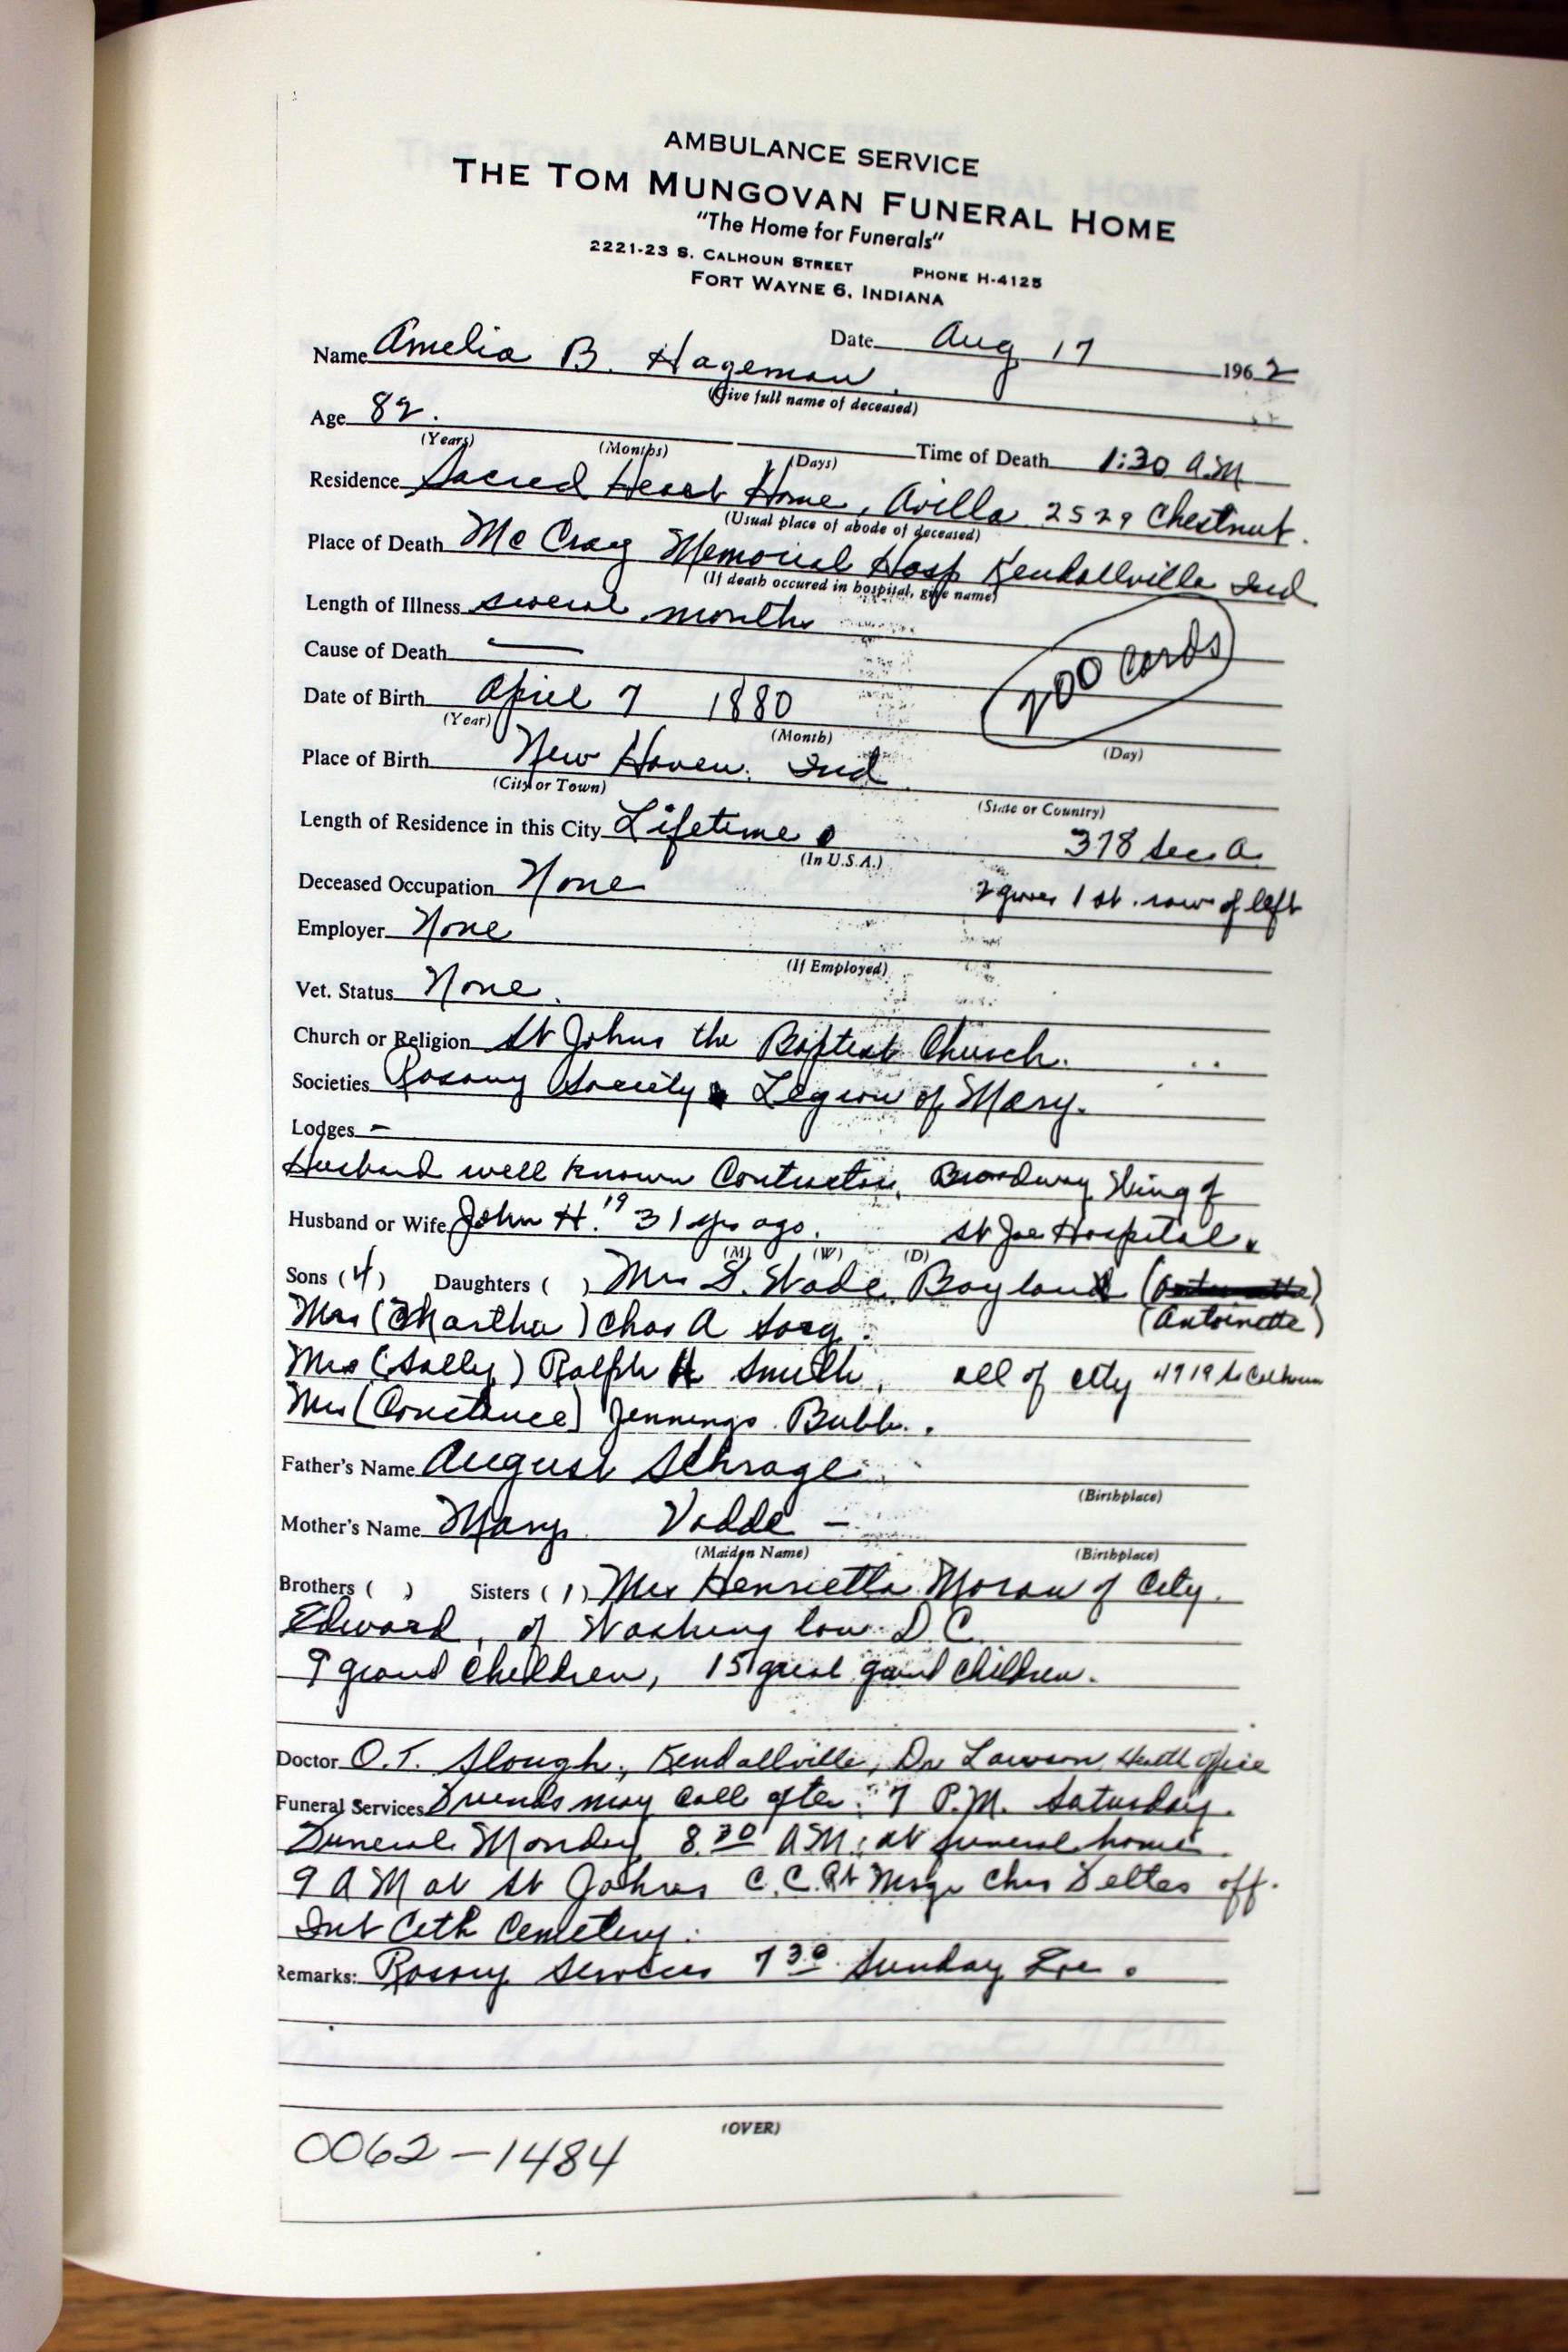 AMBULANCE SERVICE
THE TOM MUNGOVAN FUNERAL HOME
"The Home for Funerals"
2221-23 S. CALHOUN STREET PHONE H-4125
FORT WAYNE 6, INDIANA
Date Aug 17 1962
Name Amelia B. Hageman
(Give full name of deceased)
Age 82.
(Years) (Months) (Days) Time of Death 1:30 A.M
Residence Sacred Heart Home, Avilla 2529 Chestnut.
(Usual place of abode of deceased)
Place of Death McCray Memorial Hosp Kendallville Ind
(If death occured in hospital, give name)
Length of Illness several months
200 cards
Cause of Death —
Date of Birth April 7 1880
(Year) (Month) (Day)
Place of Birth New Haven. Ind
(City or Town) (State or Country)
Length of Residence in this City Lifetime 378 Sec. A.
(In U.S.A.)
Deceased Occupation None 1st. row of left
Employer None
(If Employed)
Vet. Status None.
Church or Religion St Johns the Baptist Church.
Societies Rosary Society Legion of Mary.
Lodges –
Husband well known Contractor, Broadway Wing of
Husband or Wife John H. 19 31 yrs ago. St Joe Hospital.
(M) (W) (D)
Sons (4) Daughters ( ) Mrs S. Wade Boyland
Mrs (Martha) Chas A Sorg. (Antoinette)
Mrs (Sally) Ralph H Smith, all of city 4719 So Calhoun
Mrs (Constance) Jennings Bubb.
Father's Name August Schrage
(Birthplace)
Mother's Name Mary Vodde –
(Maiden Name) (Birthplace)
Brothers ( ) Sisters (1) Mrs Henrietta Moran of City.
Edward, of Washington D.C.
9 grand children, 15 great grand children.
Doctor O.T. Slough, Kendallville, Dr Lawson, Health Office
Funeral Services Friends may call after 7 P.M. Saturday.
Funeral Monday 8:30 AM. at funeral home.
9 AM at St Johns C.C. Rt Msgr Chas Feltes off.
Int Cath Cemetery.
Remarks: Rosary Services 7 30 Sunday Eve.
(OVER)
0062-1484